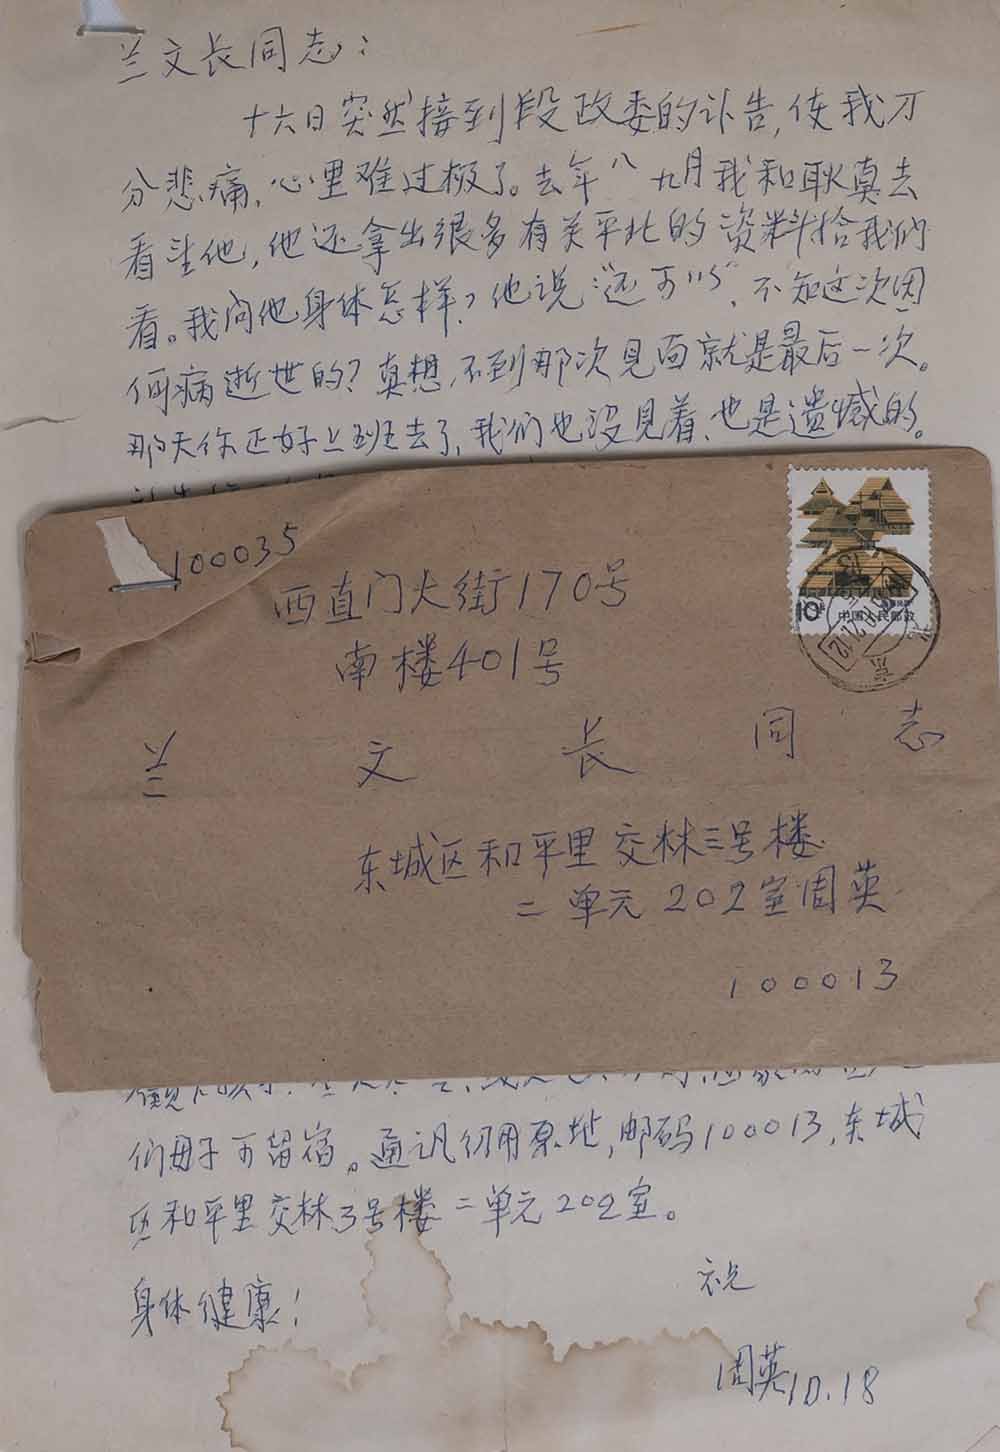 兰文长同志：
十六日突然接到段政委的讣告，使我万
分悲痛，心里难过极了。去年八九月我和耿真去
看望他，他还拿出很多有关平北的资料给我们
看。我问他身体怎样？他说“还可以”，不知这次因
何病逝世的？真想不到那次见面就是最后一次。
那天你正好上班去了，我们也没见着，也是遗憾的。
100035
西直门大街170号
南楼401号
兰文长同志
东城区和平里交林三号楼
二单元202室周英
100013
10
中国人民邮政
们母子可留宿。通讯仍用原地，邮码100013，东城
区和平里交林3号楼二单元202室。
祝
身体健康！
周英10.18